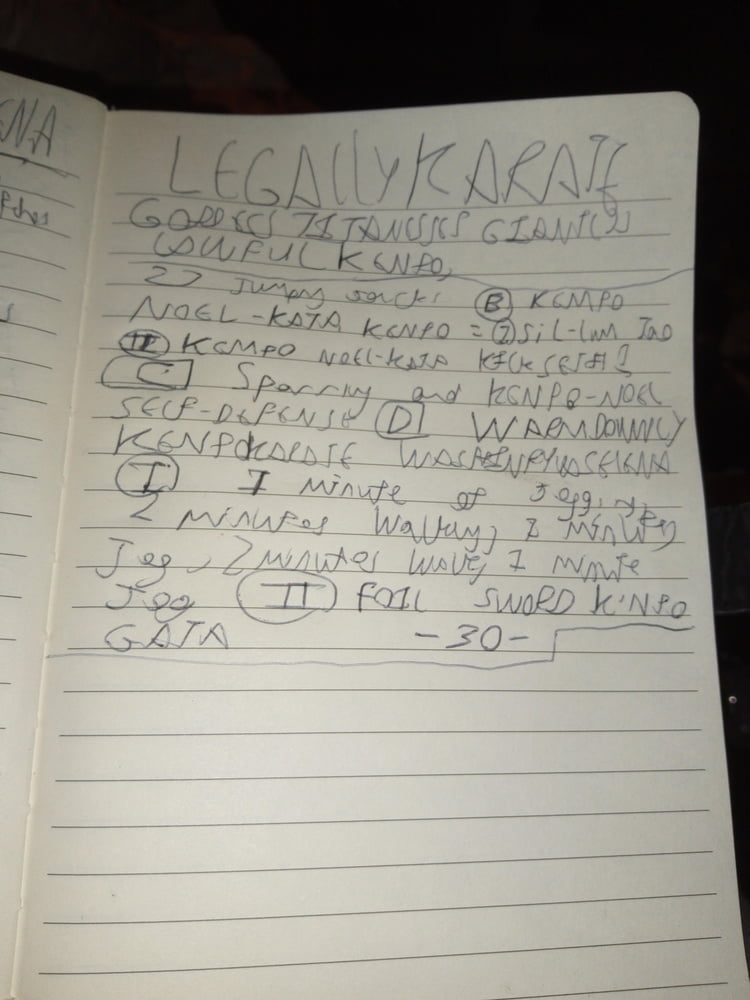 ENA
LEGALLY KARATE
GODDESSES TITANESSES GIANTESS
LAWFUL KENPO,
27 Jumping Jacks (B) KEMPO
NOEL-KATA KENPO = (I) SiL-Lum Tao
(II) KEMPO NOEL-KATA KICK SET#1
C. Sparring and KENPO-NOEL
SELF-DEFENSE D WARMDOWNLY
KENPOKARATE
(I) 1 minute of Jogging,
2 minutes Walking, 1 minute
Jog, 2 minutes Walk, 1 minute
Jog (II) FOIL SWORD KENPO
GATA -30-